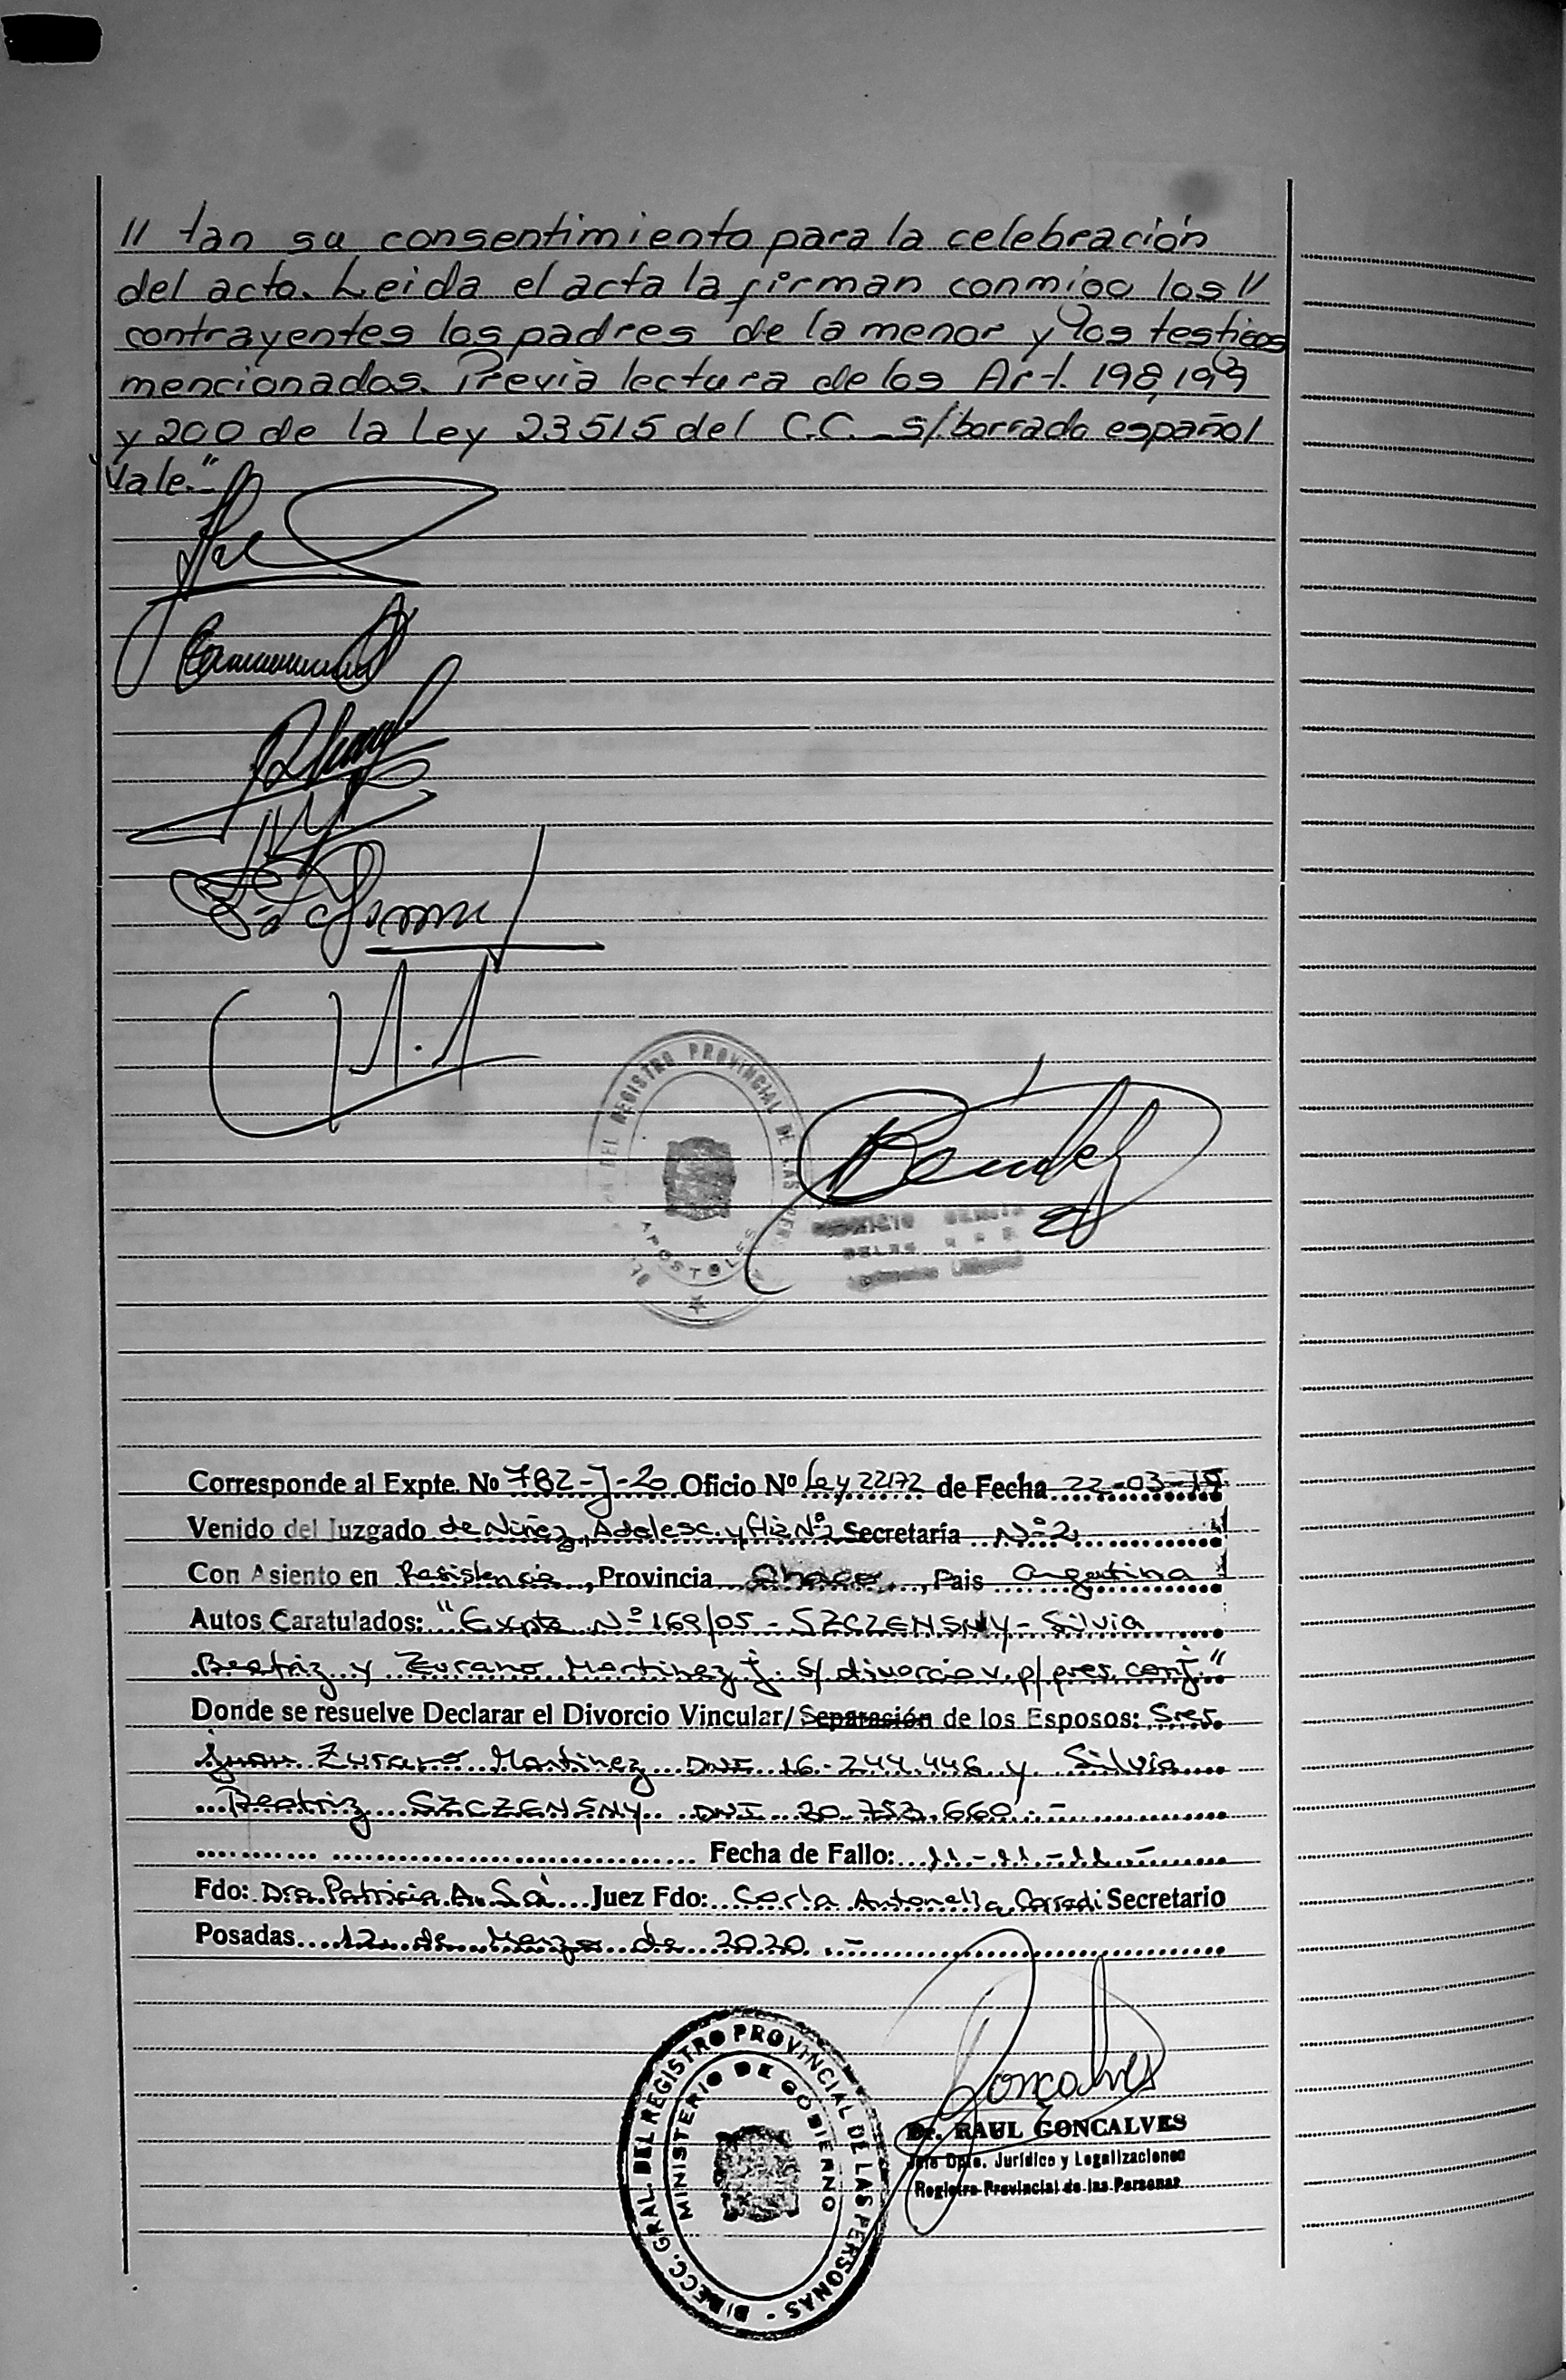 // tan su consentimiento para la celebración
del acto. Leida el acta la firman conmigo los //
contrayentes los padres de la menor y los testigos
mencionados. Previa lectura de los Art. 198, 199
y 200 de la Ley 23515 del C.C. s/borrado español
Vale."
DEL REGISTRO PROVINCIAL DE LAS
APOSTOLES
Corresponde al Expte. No 782-J-20 Oficio Nº Ley 22172 de Fecha 22-03-19
Venido del Juzgado de Niñez, Adolesc. y flia Nº2 Secretaría Nº2
Con Asiento en Resistencia, Provincia Chaco, Pais Argentina
Autos Caratulados: "Expte Nº 169/05 - SZCZENSNY - Silvia
Beatriz y Zurano Martinez J. S/ divorcio v. p/ pres. conj."
Donde se resuelve Declarar el Divorcio Vincular/Separación de los Esposos: Sres.
Juan Zurano Martinez DNI 16.244.446 y Silvia
Beatriz SZCZENSNY DNI 20.753.660.-
Fecha de Fallo: 11-11-11.-
Fdo: Dra Patricia A. Sá Juez Fdo: Carla Antonella Corradi Secretario
Posadas 12 de Marzo de 2020.-
Goncalves
DIRECC. GRAL. DEL REGISTRO PROVINCIAL DE LAS PERSONAS -
MINISTERIO DE GOBIERNO
Dr. RAUL GONCALVES
Jefe Dpto. Jurídico y Legalizaciones
Registro Provincial de las Personas